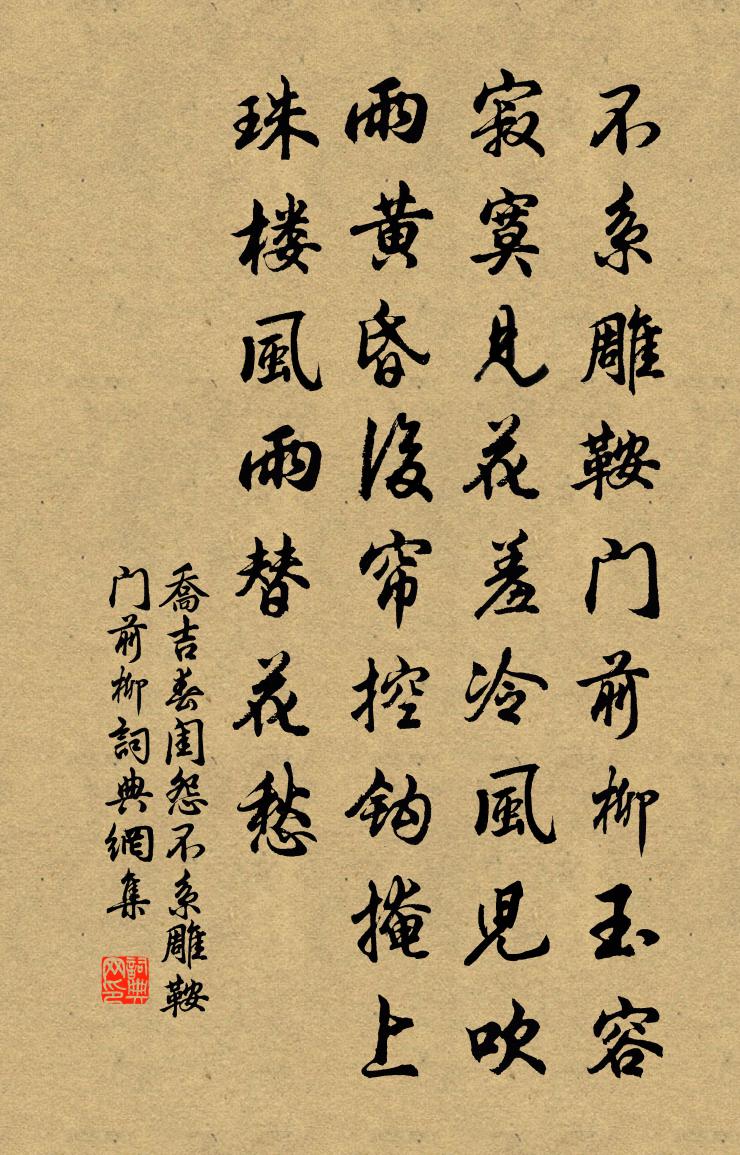 不系雕鞍门前柳玉容
寂寞见花羞冷風児吹
雨黄昏後帘控钩掩上
珠楼風雨替花愁
喬吉春閨怨不系雕鞍
门前柳詞典網集
詞典网印